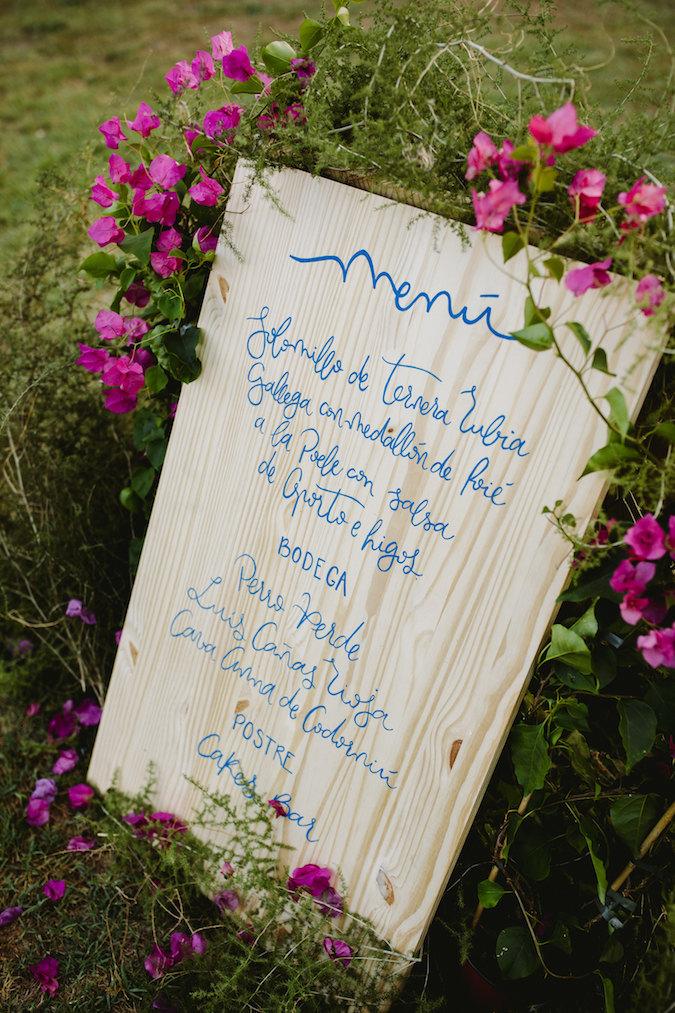 Menú
Solomillo de Ternera Rubia
Gallega con medallón de foié
a la Poele con salsa
de Oporto e higos
BODEGA
Perro Verde
Luis Cañas Rioja
Cava Anna de Codorniú
POSTRE
Cakes Bar